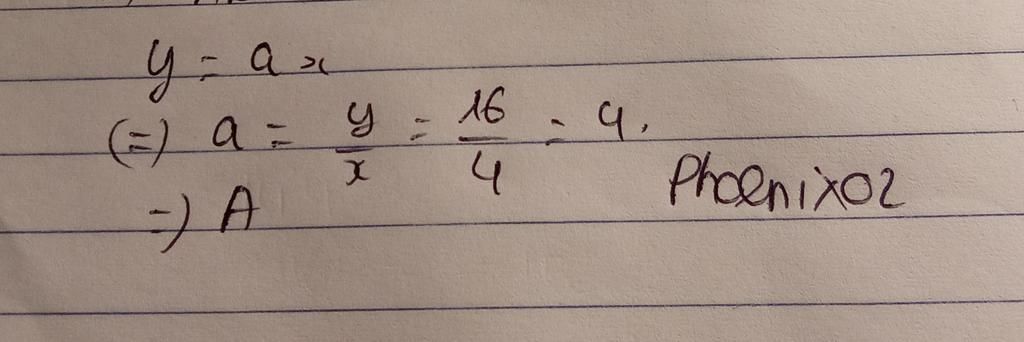 y = ax
(=) a = y/x = 16/4 = 4.
=) A
Phoenix02